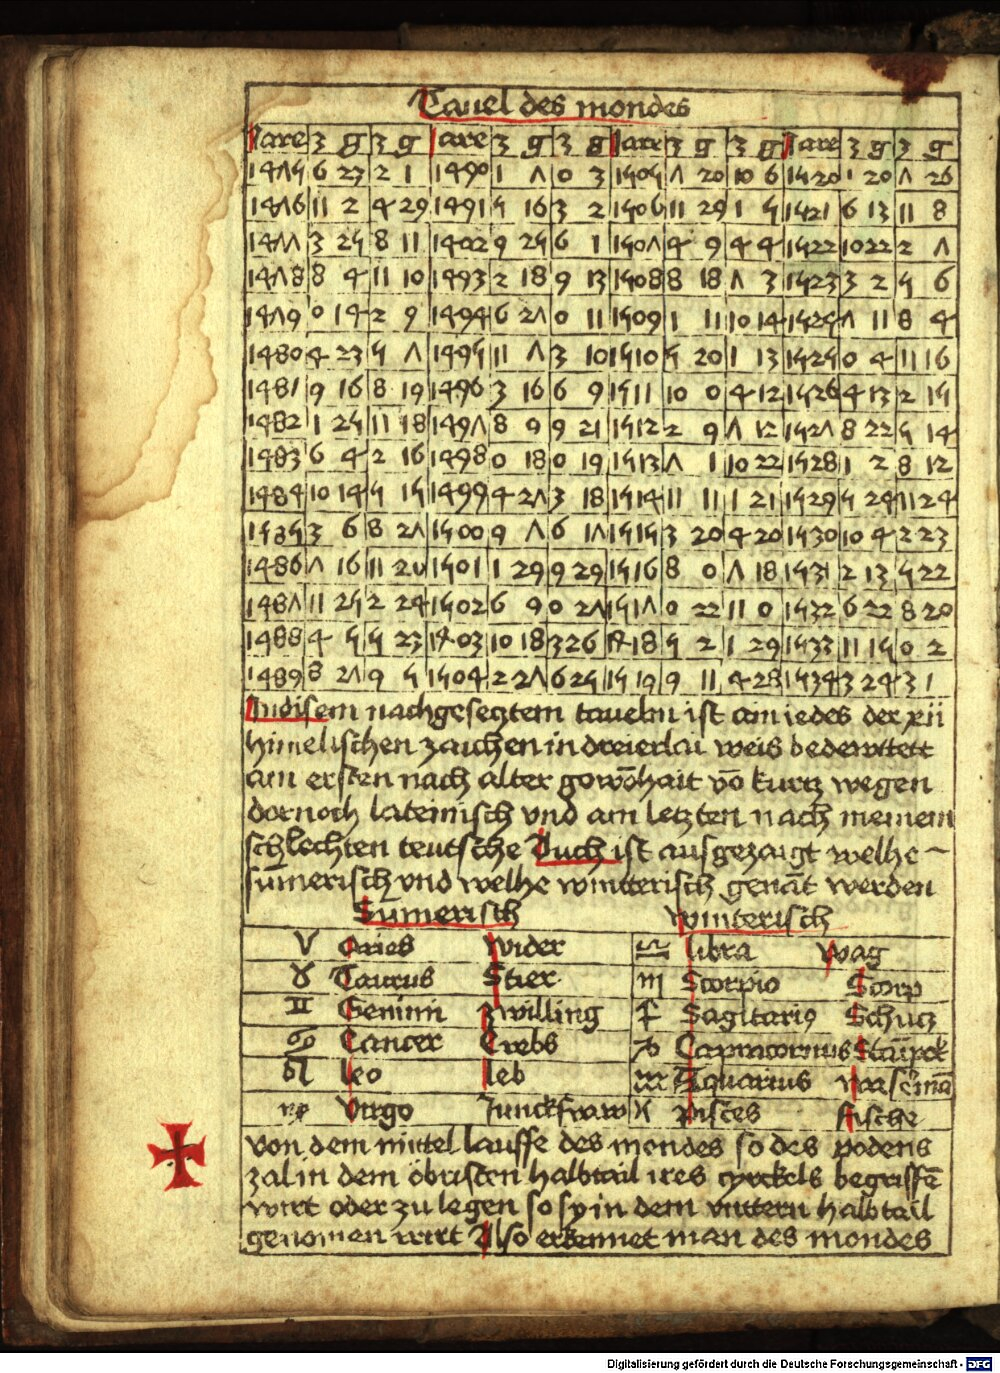 Tauel des mondes
Jare z g z g Jare z g z g Jare z g z g Jare z g z g
1475 6 23 2 1 1490 1 7 0 3 1505 7 20 10 6 1520 1 20 7 26
1476 11 2 4 29 1491 5 16 3 2 1506 11 29 1 5 1521 6 13 11 8
1477 3 25 8 11 1492 9 25 6 1 1507 4 9 4 4 1522 10 22 2 7
1478 8 4 11 10 1493 2 18 9 13 1508 8 18 7 3 1523 3 2 5 6
1479 0 14 2 9 1494 6 27 0 11 1509 1 11 10 14 1524 7 11 8 4
1480 4 23 5 7 1495 11 7 3 10 1510 5 20 1 13 1525 0 4 11 16
1481 9 16 8 19 1496 3 16 6 9 1511 10 0 4 12 1526 4 13 2 15
1482 1 25 11 18 1497 8 9 9 21 1512 2 9 7 12 1527 8 22 5 14
1483 6 4 2 16 1498 0 18 0 19 1513 7 1 10 22 1528 1 2 8 12
1484 10 14 5 15 1499 4 27 3 18 1514 11 11 1 21 1529 5 24 11 24
1485 3 6 8 27 1500 9 7 6 17 1515 3 20 4 20 1530 10 4 2 23
1486 7 16 11 26 1501 1 29 9 29 1516 8 0 7 18 1531 2 13 5 22
1487 11 25 2 24 1502 6 9 0 27 1517 0 22 11 0 1532 6 22 8 20
1488 4 5 5 23 1503 10 18 3 26 1518 5 2 1 29 1533 11 15 0 2
1489 8 27 9 5 1504 2 27 6 25 1519 9 11 4 28 1534 3 24 3 1
Indisem nachgesetztem tauelin ist am iedes der xii
himelischen zaichen in dreierlai weis bedewttett
am ersten nach alter gewonhait vō kurtz wegen
dornoch lateinisch vnd am letzten nach meinem
schlechten teutsche Auch ist ausgezaigt welhe
sūmerisch vnd welhe wintterisch genāt werden
Sūmerisch winterisch
♈ Aries Wider ♎ libra wag
♉ Taurus Stier ♏ Scorpio Scorp
♊ Gemini zwilling ♐ Sagitari9 Schucz
♋ Cancer Crebs ♑ Capricornus Stainpock
♌ leo leb ♒ Aquarius
♍ Virgo Junckfraw ♓ pisces fische
von dem mittel lauffe des mondes so des podens
zal in dem öbristen halbtail ires cyrckels begriffē
wirt oder zu legen so sy in dem vnttern halbtail
genomen wirt Also erkennet man des mondes
Digitalisierung gefördert durch die Deutsche Forschungsgemeinschaft - DFG